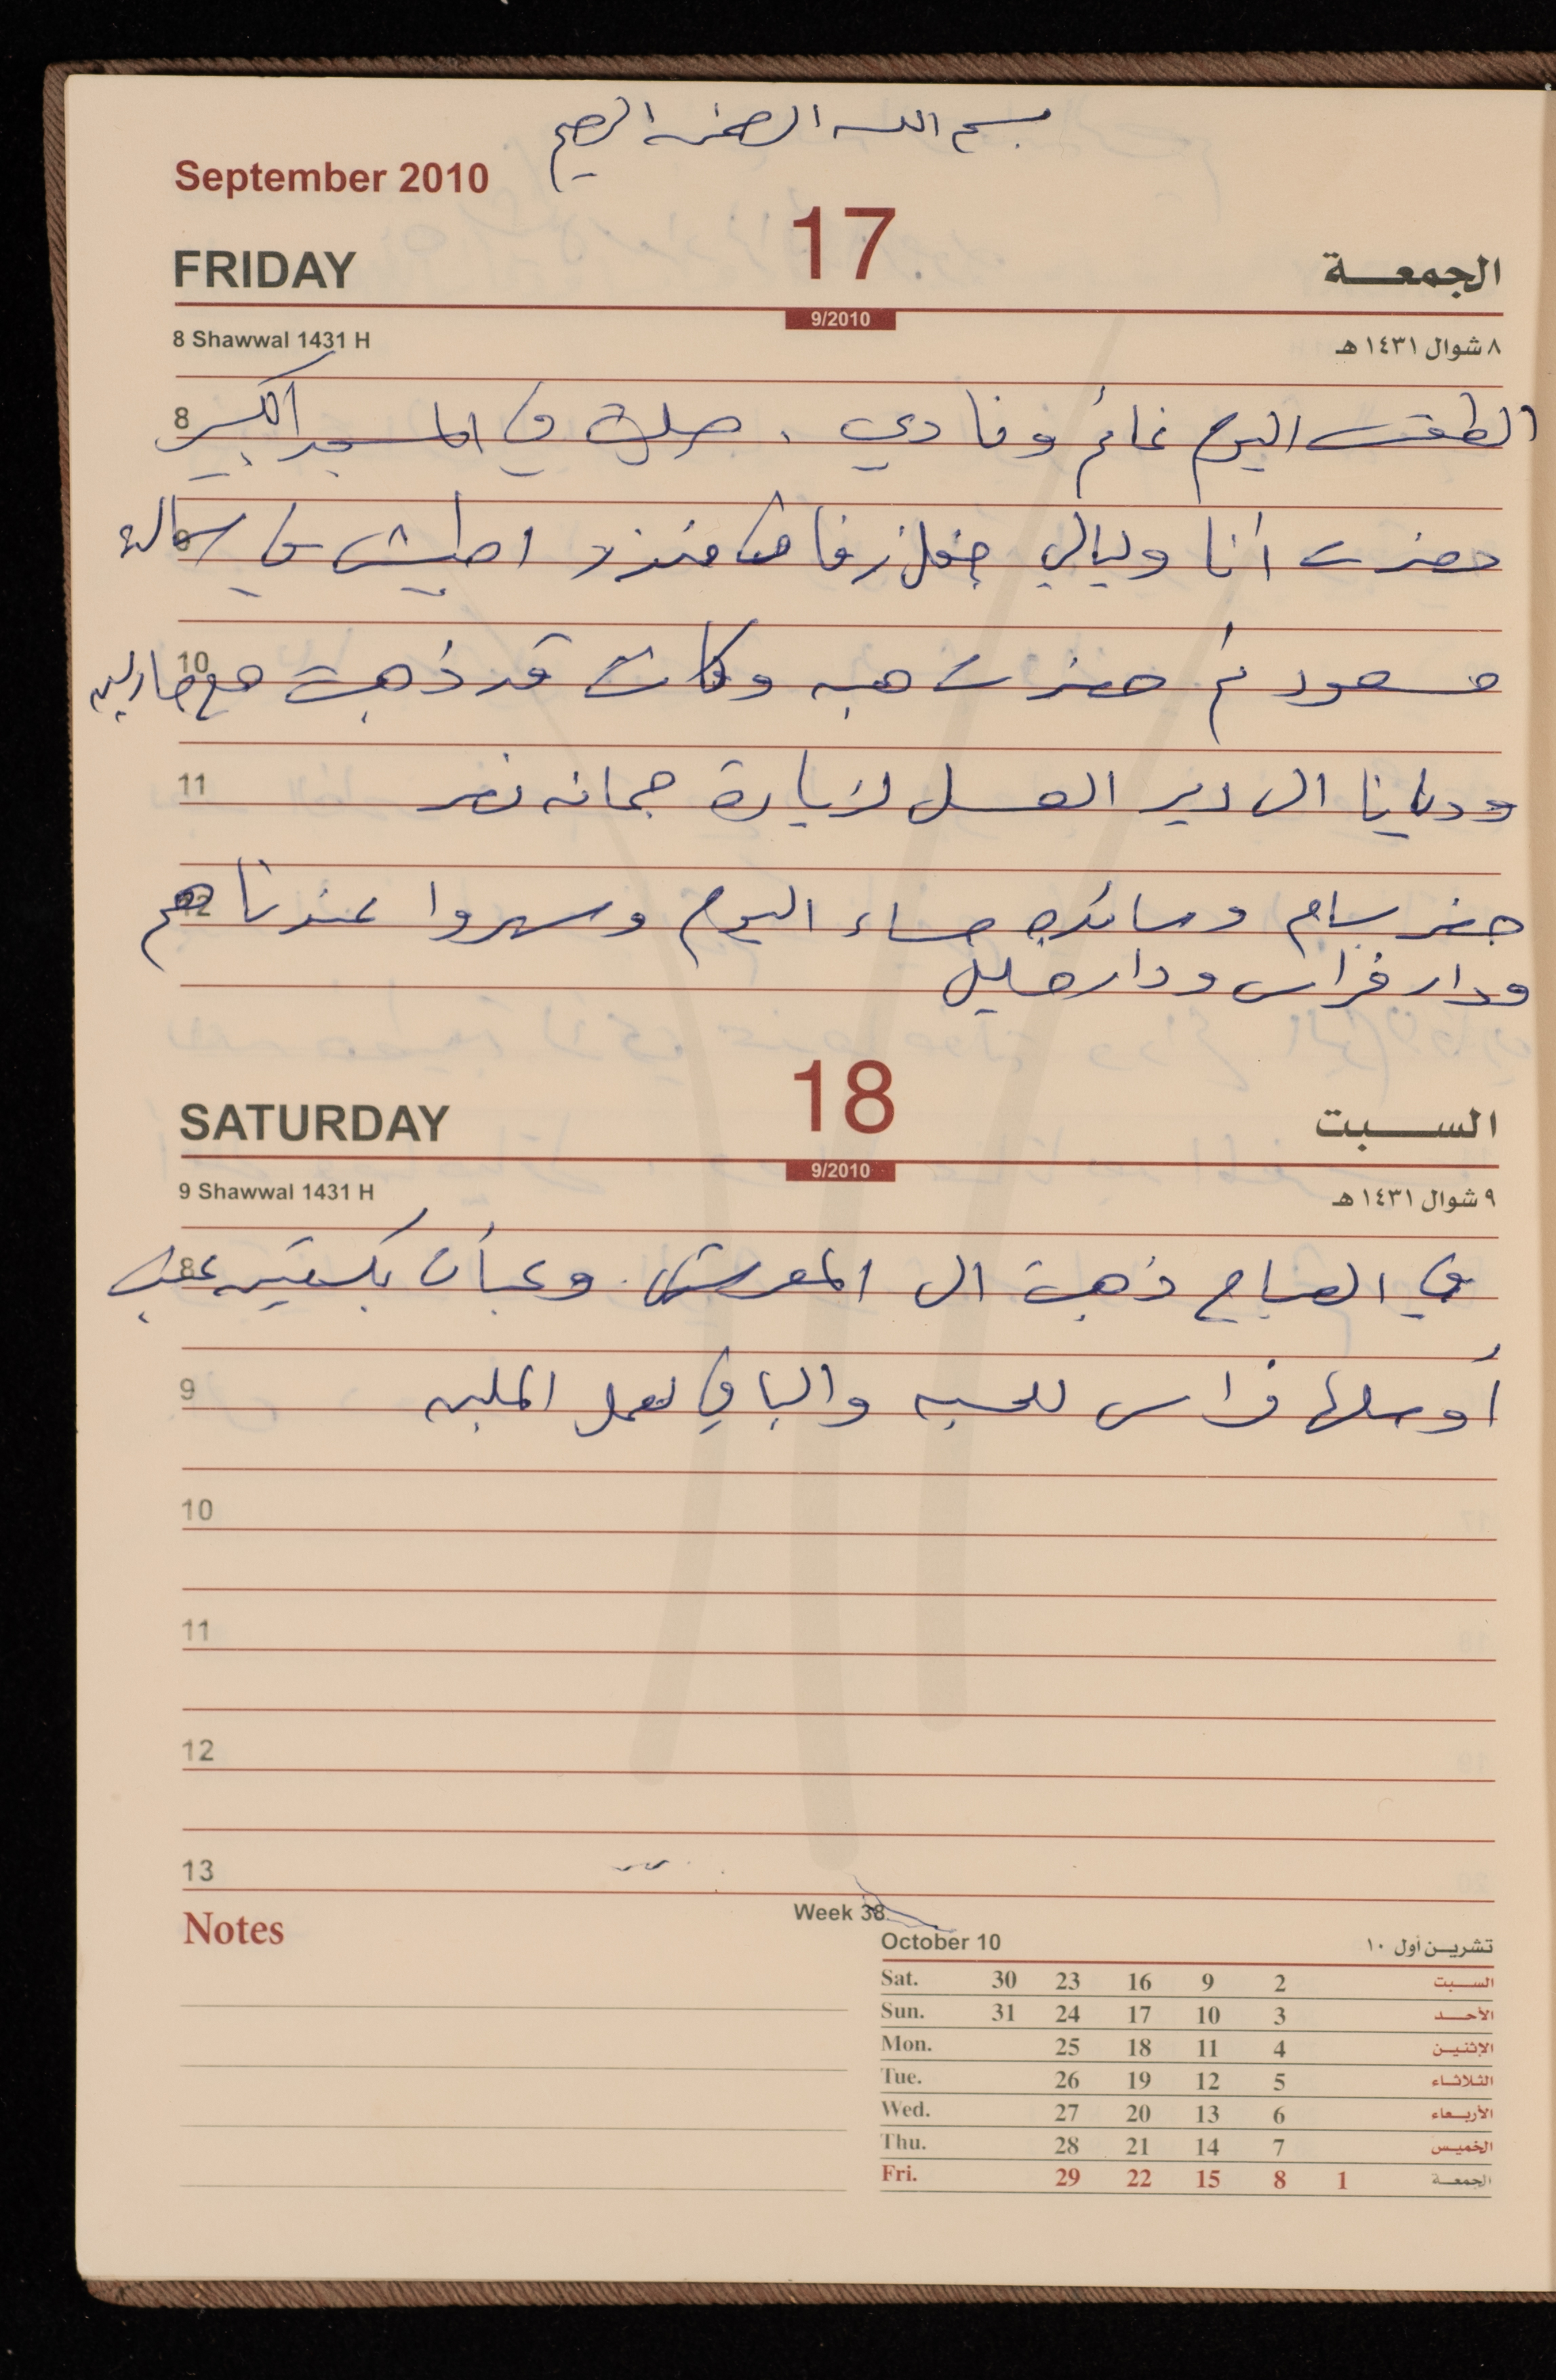 بسم الله الرحمن الرحيم
September 2010
17
FRIDAY
الجمعـــة
9/2010
8 Shawwal 1431 H
٨ شوال ١٤٣١ هـ
8
الطقس اليوم غائم وعادي . صليت في المسجد الكبير
9
حضرت أنا وليالي حفل زفاف منذر اطبيش في صالة
10
مسعود ثم حضرت هبه وكانت قد ذهبت مع مارلين
11
وديانا الى دير العسل لزيارة جمانه نصر
12
حضر بسام وسائده مساء اليوم وسهروا عندنا هم
ودار فراس ودار خليل
18
SATURDAY
الســـبت
9/2010
9 Shawwal 1431 H
٩ شوال ١٤٣١ هـ
8
في الصباح ذهبت الى المعرش وعبأت بكستين عنب
9
أرسلها فراس للحسبه والباقي لعمل الملبن
10
11
12
13
Notes
Week 38
October 10
تشريـن أول ١٠
Sat. 30 23 16 9 2 السـبت
Sun. 31 24 17 10 3 الأحـد
Mon. 25 18 11 4 الإثنيـن
Tue. 26 19 12 5 الثلاثـاء
Wed. 27 20 13 6 الأربـعاء
Thu. 28 21 14 7 الخميـس
Fri. 29 22 15 8 1 الجمعـة